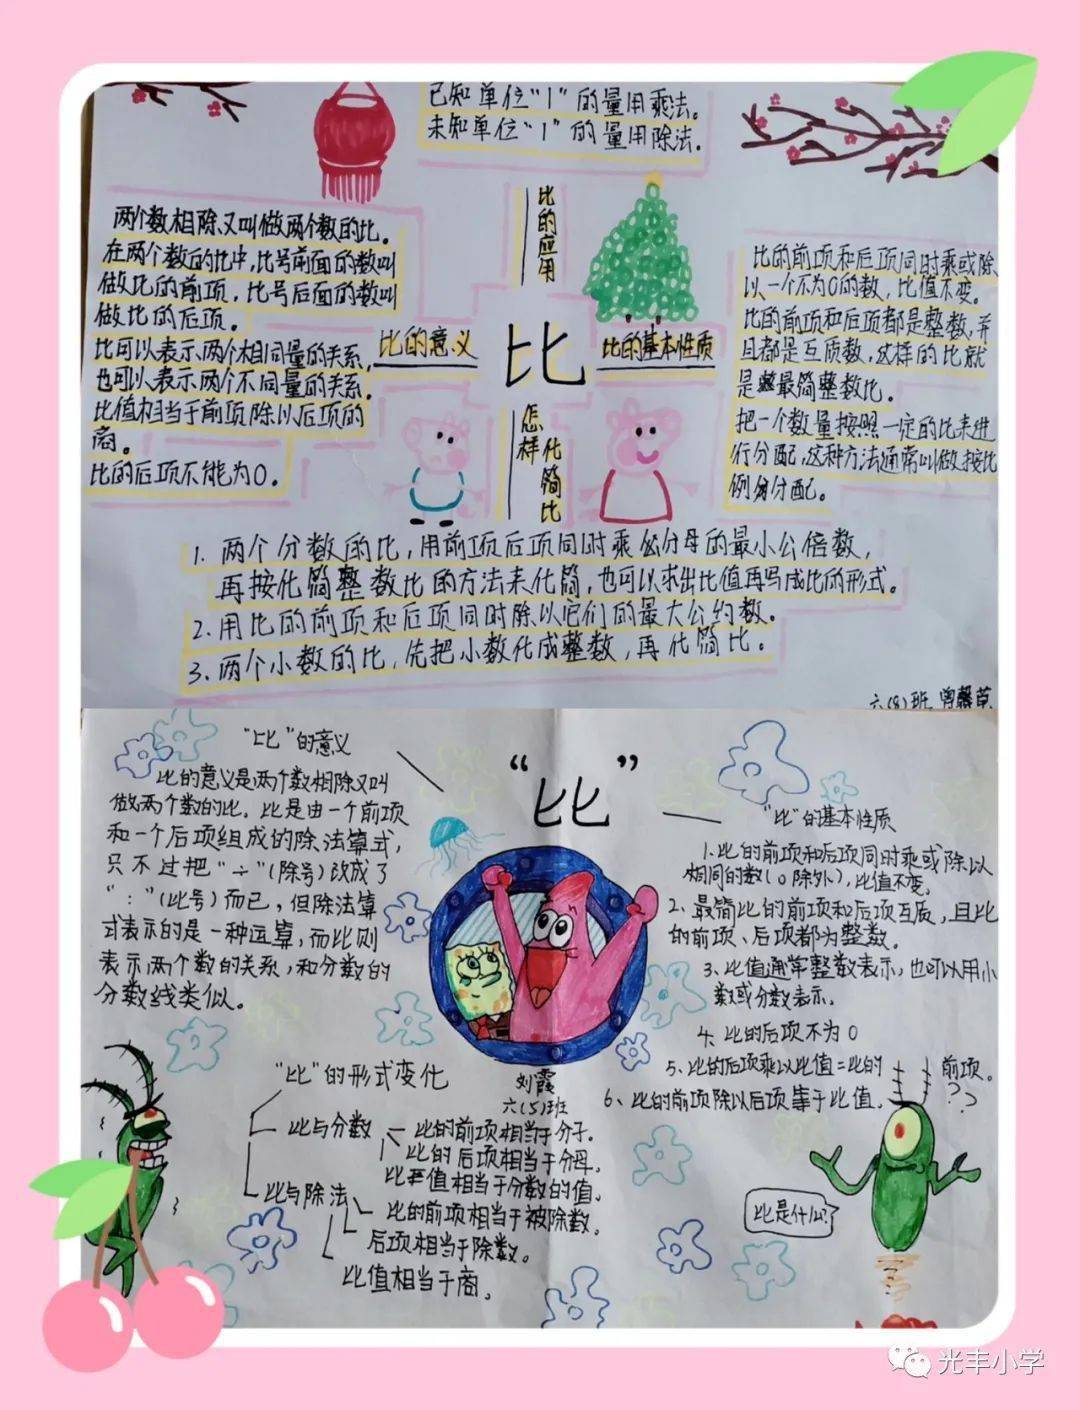 已知单位“1”的量用乘法。
未知单位“1”的量用除法。
比的应用
两个数相除又叫做两个数的比。
在两个数的比中，比号前面的数叫
做比的前项，比号后面的数叫
做比的后项。
比可以表示两个相同量的关系，
也可以表示两个不同量的关系。
比值相当于前项除以后项的
商。
比的后项不能为0。
比的意义
比
比的基本性质
比的前项和后项同时乘或除
以一个不为0的数，比值不变。
比的前项和后项都是整数，并
且都是互质数，这样的比就
是最简整数比。
把一个数量按照一定的比来进
行分配，这种方法通常叫做按比
例分配。
怎样化简比
1. 两个分数的比，用前项后项同时乘分母的最小公倍数，
再按化简整数比的方法来化简，也可以求出比值再写成比的形式。
2. 用比的前项和后项同时除以它们的最大公约数。
3. 两个小数的比，先把小数化成整数，再化简比。
六(8)班
“比”的意义
比的意义是两个数相除又叫
做两个数的比。比是由一个前项
和一个后项组成的除法算式，
只不过把“÷”(除号)改成了
“：”(比号)而已，但除法算
式表示的是一种运算，而比则
表示两个数的关系，和分数的
分数线类似。
“比”
“比”的基本性质
1、比的前项和后项同时乘或除以
相同的数(0除外)，比值不变。
2、最简比的前项和后项互质，且比
的前项、后项都为整数。
3、比值通常整数表示，也可以用小
数或分数表示。
4、比的后项不为0
5、比的后项乘以比值=比的前项。
6、比的前项除以后项等于比值。
? ?
刘霞
六(5)班
“比”的形式变化
比与分数
比的前项相当于分子。
比的后项相当于分母。
比值相当于分数的值。
比与除法
比的前项相当于被除数。
后项相当于除数。
比值相当于商。
比是什么?
光丰小学